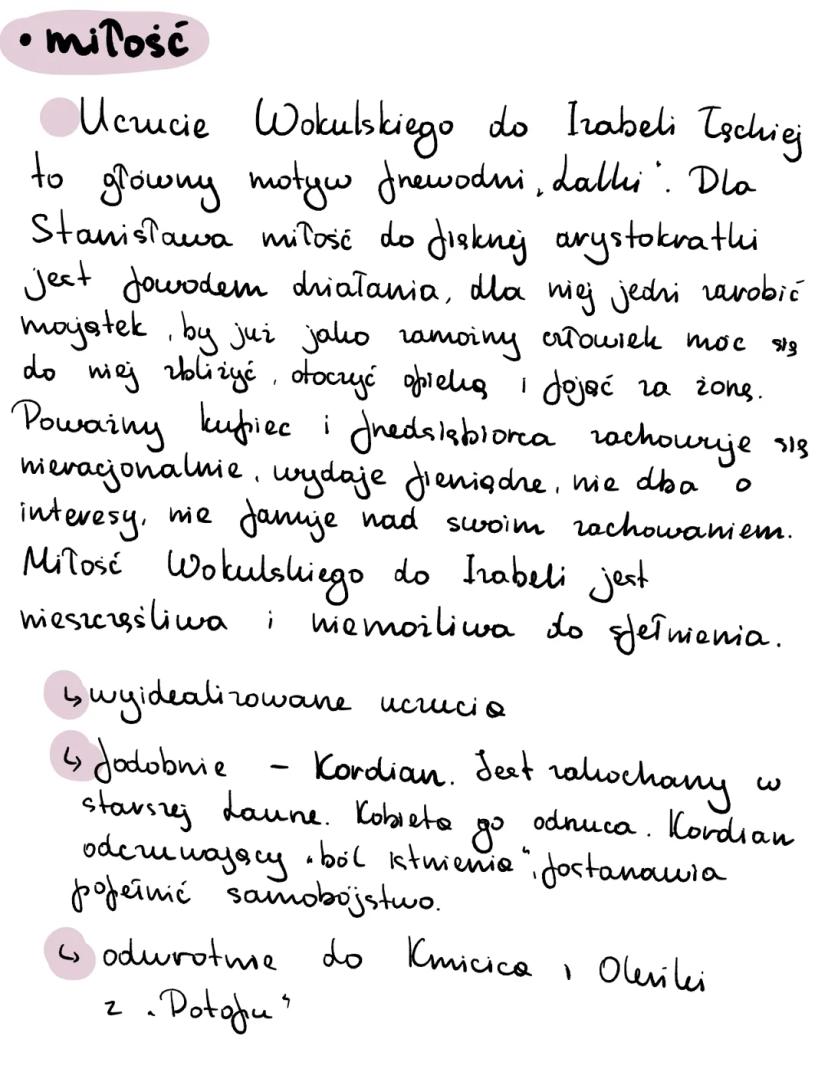 • miłość
Uczucie Wokulskiego do Izabeli Łęckiej
to główny motyw przewodni „Lalki". Dla
Stanisława miłość do pięknej arystokratki
jest powodem działania, dla niej jedzie zarobić
majątek, by już jako zamożny człowiek móc się
do niej zbliżyć, otoczyć opieką i pojąć za żonę.
Poważny kupiec i przedsiębiorca zachowuje się
nieracjonalnie, wydaje pieniądze, nie dba o
interesy, nie panuje nad swoim zachowaniem.
Miłość Wokulskiego do Izabeli jest
nieszczęśliwa i niemożliwa do spełnienia.
↳ wyidealizowane uczucie
↳ podobnie - Kordian. Jest zakochany w
starszej Laurze. Kobieta go odrzuca. Kordian
odczuwający „ból istnienia", postanawia
popełnić samobójstwo.
↳ odwrotnie do Kmicica i Oleńki
z „Potopu"